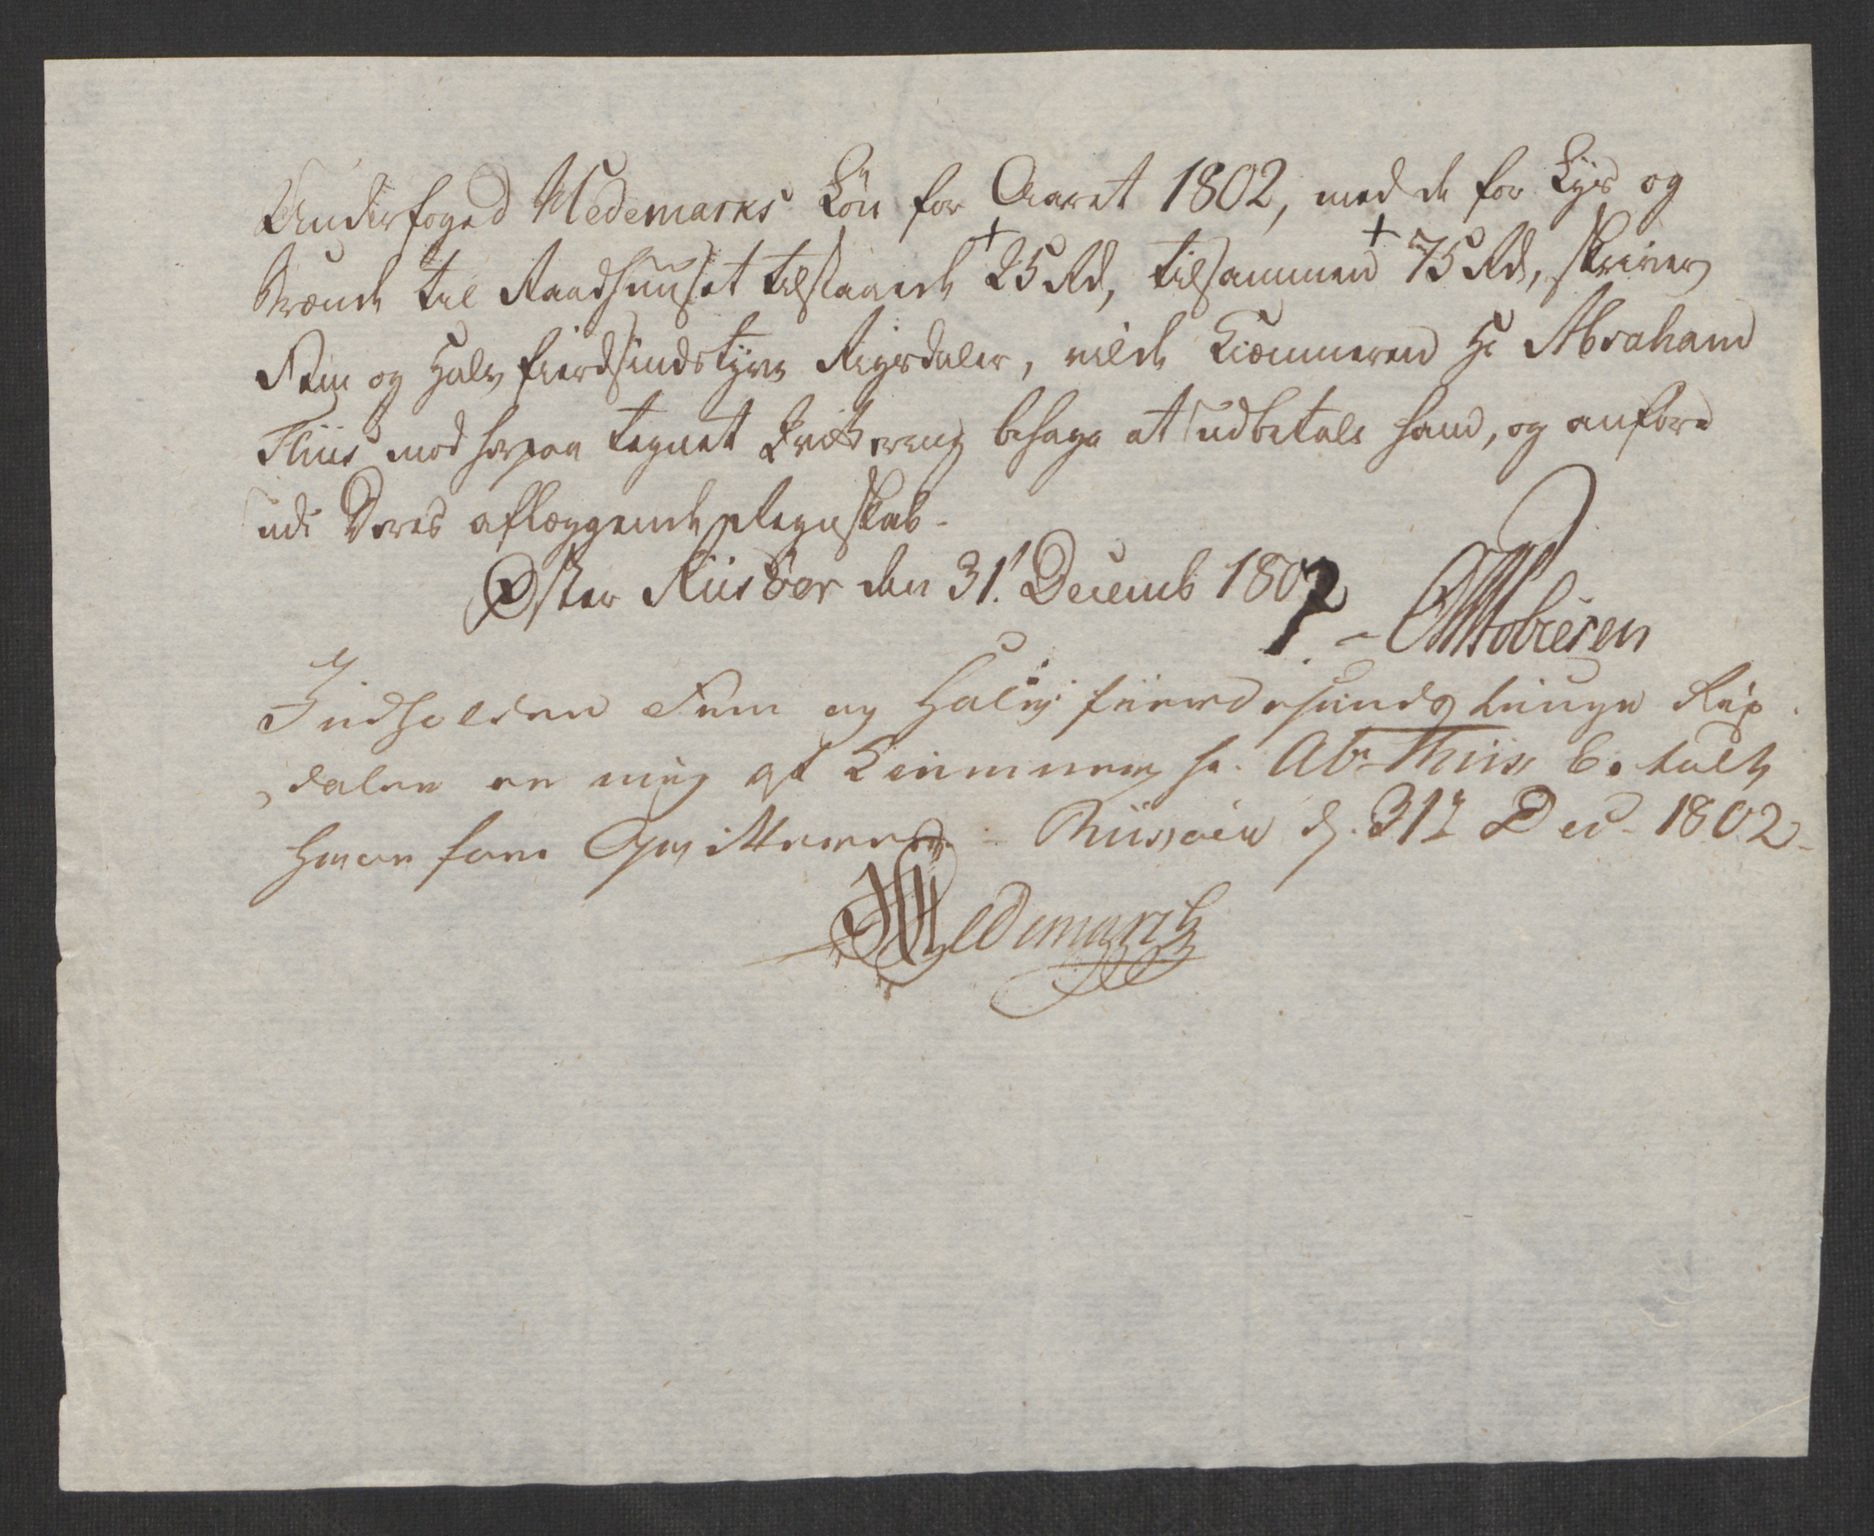 Underfoged Medemarks Løn for Aaret 1802, med de for Lys og
Brænde til Raadhuuset tilstaaede 25 Rd, tilsammen 75 Rd, skriver
Fem og Halvfierdsindstyve Rigsdaler, vilde Kiæmneren Hr Abraham
Thiis mod herpaa tegnet Qvittering behage at udbetale ham, og anføre
udi Deres aflæggende Regnskab.
Øster Riisöer den 31. Decemb 1802
Tobiesen
Indholden Fem og Halvfierdesindstuge Rix
daler er mig af Kiemneren hr. Abr. Thiis betalt
hvorfore Qvitteres. Riisøer d. 31t Dec 1802
Medemark